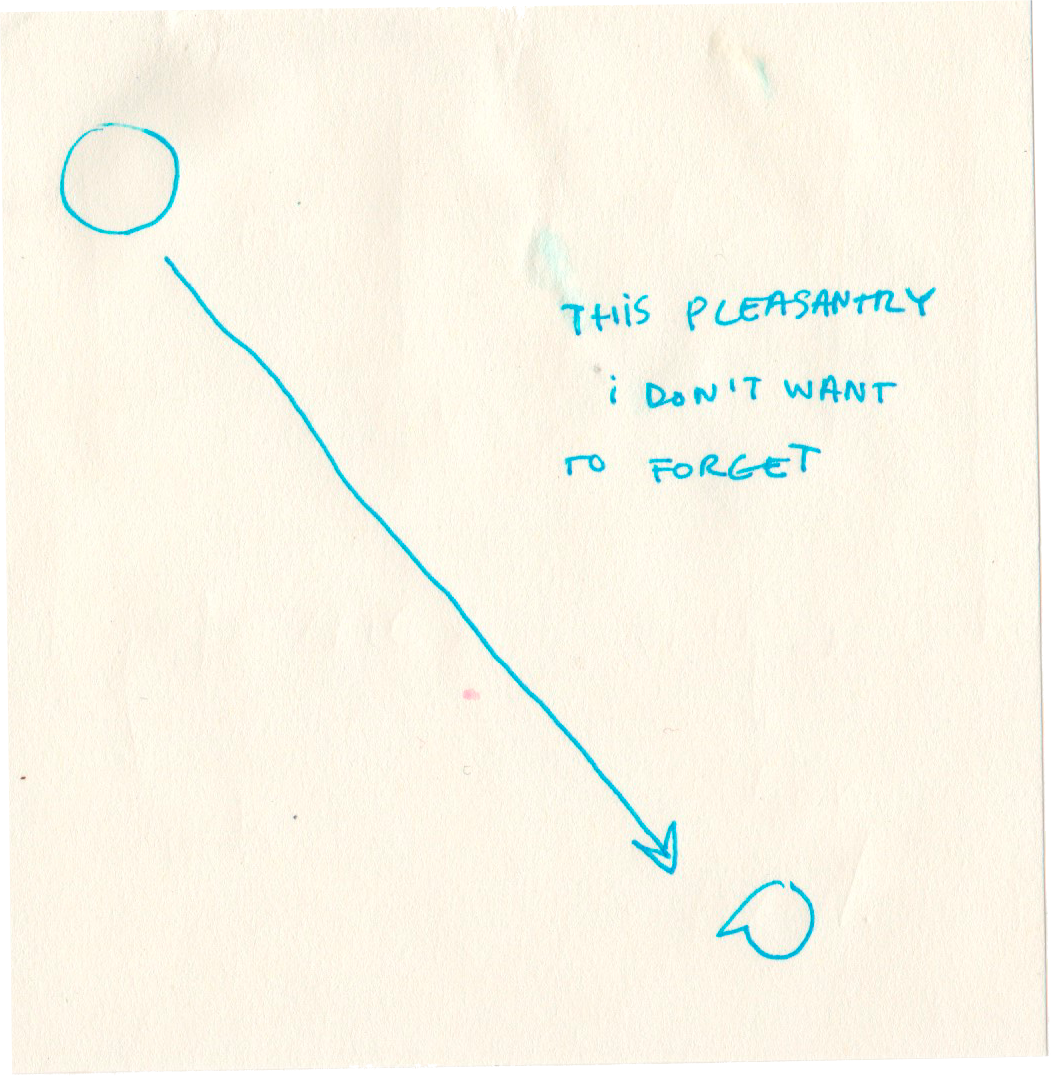 THiS PLEASANTRY
i DON'T WANT
TO FORGET